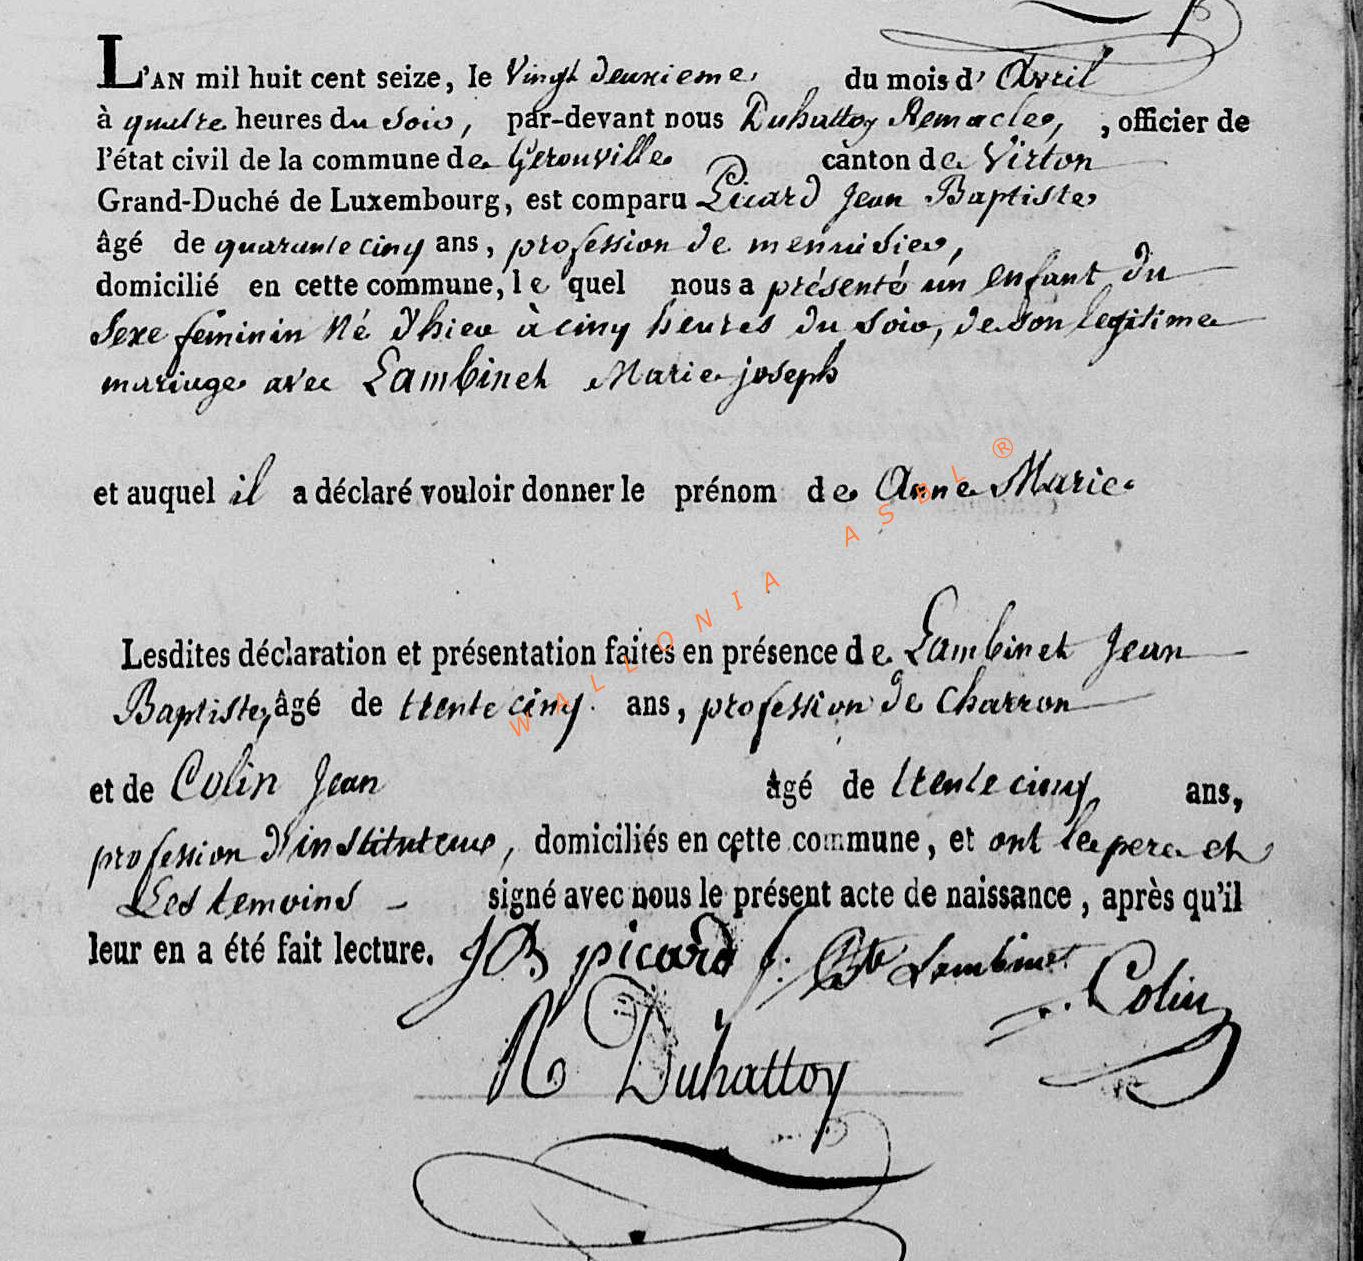 L'AN mil huit cent seize, le Vingt deuxieme du mois d' Avril
à quatre heures du soir, par-devant nous Duhattoy Remacle, , officier de
l'état civil de la commune de Gerouville canton de Virton
Grand-Duché de Luxembourg, est comparu Picard Jean Baptiste
âgé de quarante cinq ans, profession de menuisier,
domicilié en cette commune, le quel nous a présenté un enfant du
Sexe féminin Né d'hier à cinq heures du soir, de son legitime
mariage avec Lambinet Marie joseph
et auquel il a déclaré vouloir donner le prénom de Anne Marie
Lesdites déclaration et présentation faites en présence de Lambinet Jean
Baptiste, âgé de trente cinq ans, profession de Charron
et de Colin Jean âgé de trente cinq ans,
profession d'instituteur, domiciliés en cette commune, et ont le pere et
Les temoins - signé avec nous le présent acte de naissance, après qu'il
leur en a été fait lecture. JB picard J. Bte Lambinet
Colin
R Duhattoy
WALLONIA ASBL ®